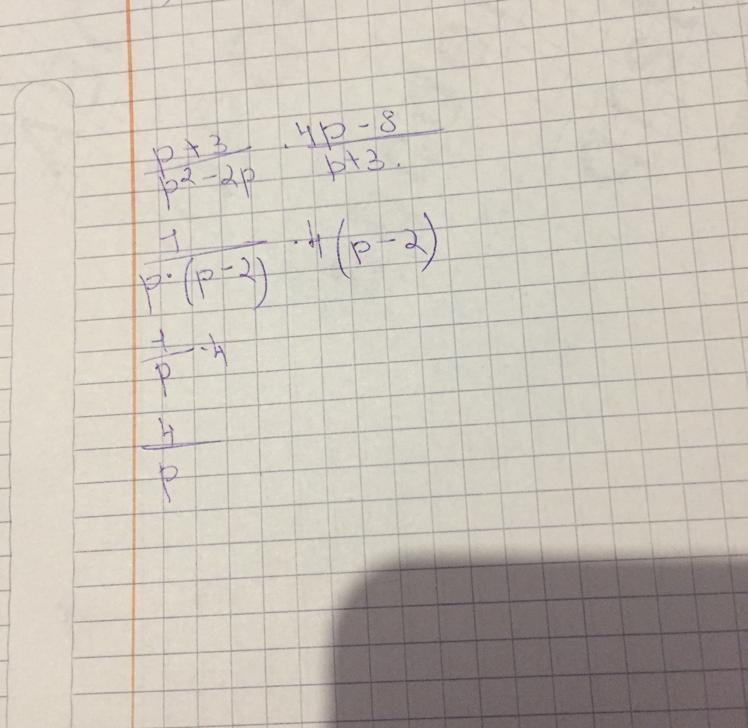 p+3/p²-2p · 4p-8/p+3.
1/p·(p-2) · 4(p-2)
1/p · 4
4/p